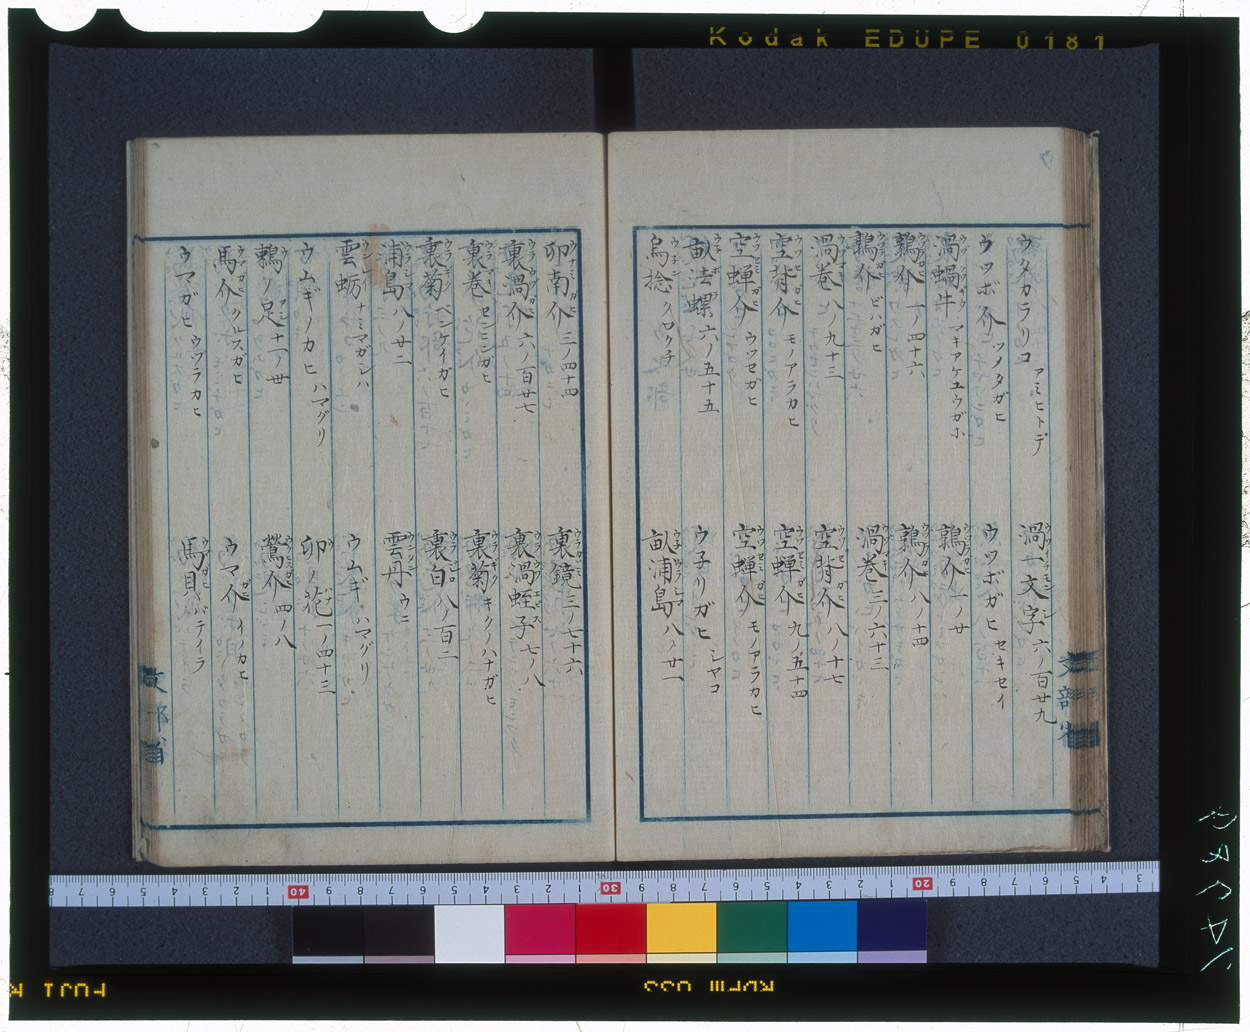 Kodak EDUPE 0181
ウ
ウタカラリコ アミヒトデ
ウツボ介 ツメタガヒ
渦蝸牛 マキアケユウガホ
鶉介 一ノ四十六
鶉介 ビハガヒ
渦巻 八ノ九十三
空背介 モノアラカヒ
空蝉介 ウツセガヒ
畝法螺 六ノ五十五
烏捻 クロクチ
渦サ文字 六ノ百廿九
ウツボガヒ セキセイ
鶉介 一ノ廿
鶉介 八ノ十四
渦巻 三ノ六十三
空背介 八ノ十七
空蝉介 九ノ五十四
空蝉介 モノアラカヒ
ウ子リガヒ シヤコ
畝浦島 八ノ廿一
文部省
卯南介 三ノ四十四
裏渦介 六ノ百廿七
裏巻 センニンガヒ
裏菊 ベンケイガヒ
浦島 八ノ廿二
雲蛎 ナミマガシハ
ウムギノカヒ ハマグリ
鵜ノ足 十一ノ廿
馬介 クルスガヒ
ウマガヒ ウツラカヒ
裏鏡 三ノ七十六
裏渦蛭子 七ノ八
裏菊 キクノハナガヒ
裏白 八ノ百二
雲丹 ウニ
ウムギ ハマグリ
卯ノ花 一ノ四十三
鶯介 四ノ八
ウマ介 イノカヒ
馬貝 バテイラ
文部省
FUJI R
RDPIII 033